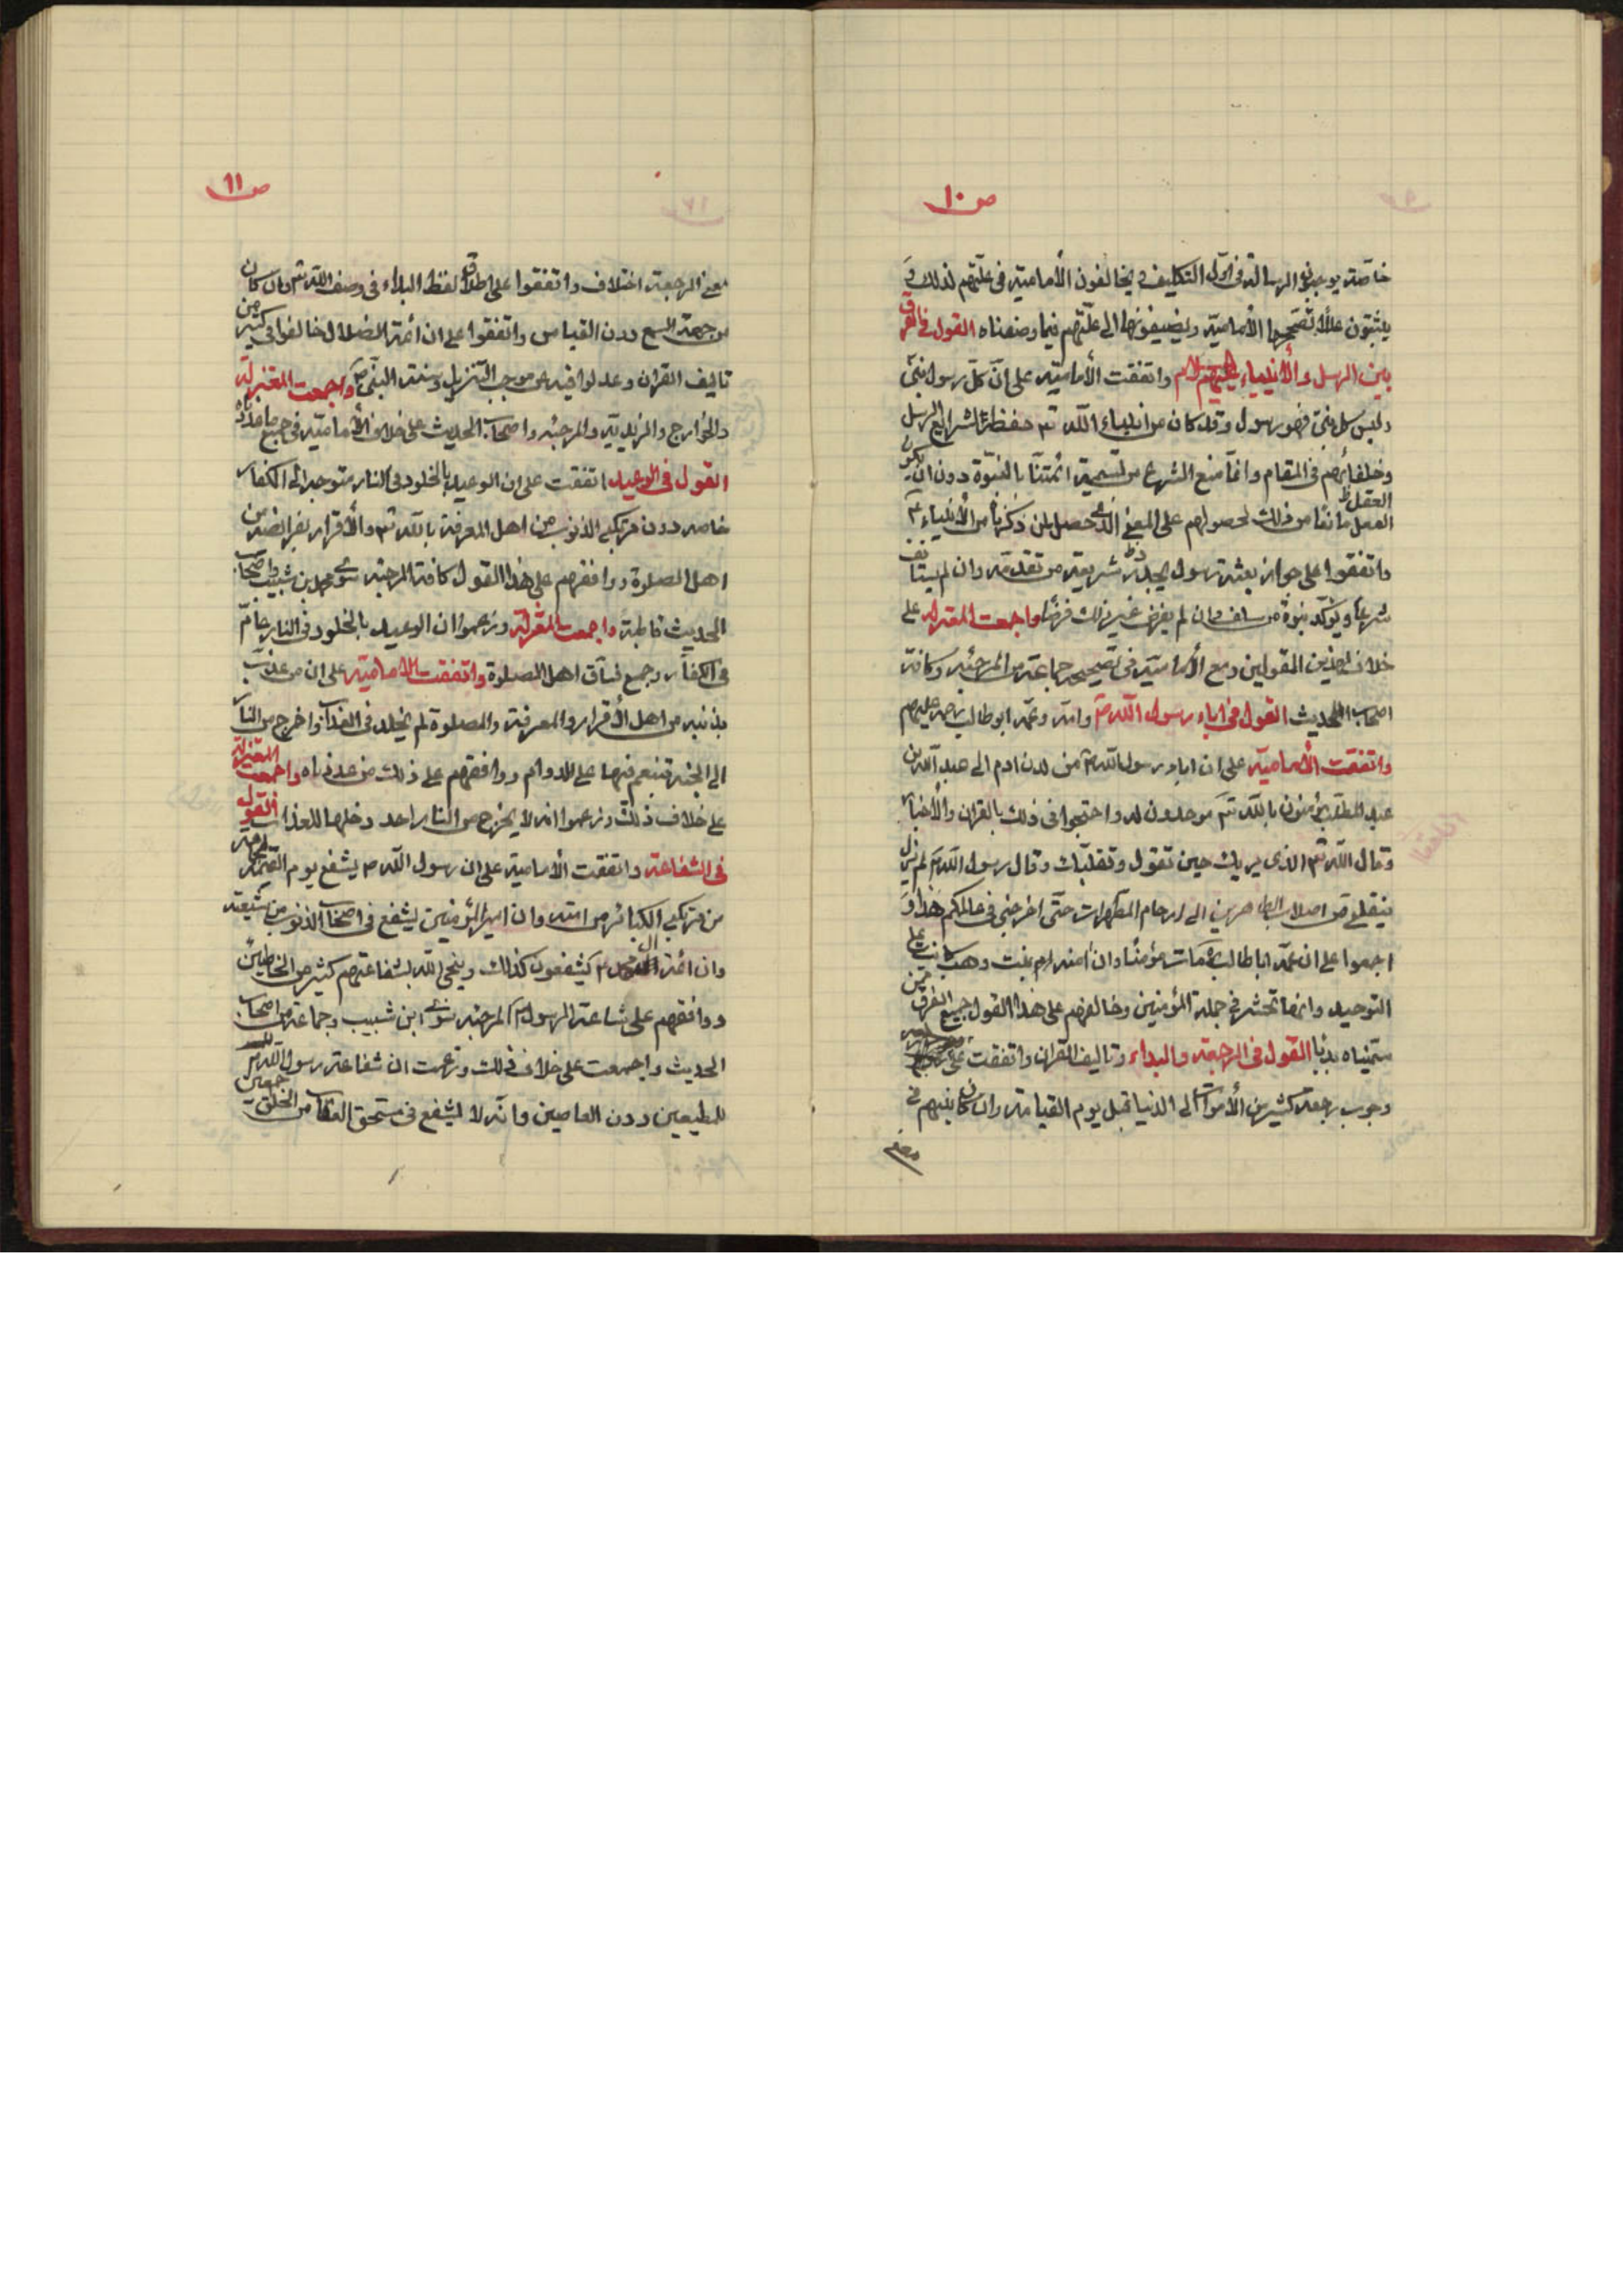 ص ١٠
خاصة يوجبون الرسالة فى اول التكليف و يخالفون الأمامية فى علتهم لذلك و
يثبتون عللا تصححها الأمامية ويضيفونها الى علتهم فيما وصفناه القول فى الفرق
بين الرسل والأنبياء عليهم السلام واتفقت الأمامية على ان كل رسول نبى
وليس كل نبى فهو رسول وقد كان من انبياء الله تع حفظة لشرايع الرسل
وخلفائهم فى المقام وانما منع الشرع من تسمية ائمتنا بالنبوة دون ان يكون
العقل ظ
العمل مانعا من ذلك لحصولهم على المعنى الذى حصل لمن ذكرناه من الأنبياء ع
واتفقوا على جواز بعثة رسول يجدد شريعة من تقدمه وان لم يستانف
شرعا ويؤكد نبوة من سلف وان لم يفرض غير ذلك فرضا واجمعت المعتزلة على
خلاف هذين القولين ومع الأمامية فى تصحيحه جماعة من المرجئه وكافة
اصحاب الحديث القول فى اباء رسول الله ص وامه وعمه ابوطالب رحمة عليهم
واتفقت الأمامية على ان اباء رسول الله ص من لدن ادم الى عبد الله بن
عبد المطلب مؤمنون بالله تع موحدون له واحتجوا فى ذلك بالقران والأخبار
وقال الله تع الذى يريك حين تقول وتقلبك وقال رسول الله ص لم يزل
ينقلنى من اصلاب الطاهرين الى ارحام المطهرات حتى اخرجنى فى عالمكم هذا و
اجمعوا على ان عمه ابا طالب مات مؤمنا وان امنه بنت وهب كانت على
التوحيد وانها تحشر فى جملة المؤمنين وخالفهم على هذا القول جميع الفرق ممن
سميناه بدئا القول فى الرجعة والبداء وتاليف القران واتفقت
وجوب رجعة كثير من الأموات الى الدنيا قبل يوم القيامة وان كان بينهم فى
معنى
ص ١١
معنى الرجعة اختلاف واتفقوا على اطلاق لفظ البداء فى وصف الله تع وان كان
من جهة السمع دون القياس واتفقوا على ان ائمة الضلال خالفوا فى كثير من
تاليف القران وعدلوا فيه عن موجب التنزيل وسنة النبى ص واجمعت المعتزلة
والخوارج والزيدية والمرجئه واصحاب الحديث على خلاف الأمامية فى جميع ما عددناه
القول فى الوعيد اتفقت على ان الوعيد بالخلود فى النار متوجه الى الكفار
خاصه دون مرتكبى الذنوب من اهل المعرفة بالله تع والأقرار بفرائضه من
اهل الصلوة ووافقهم على هذا القول كافة المرجئه سوى محمد بن شبيب واصحاب
الحديث قاطبة واجمعت المعتزلة وزعموا ان الوعيد بالخلود فى النار عام
فى الكفار وجميع فساق اهل الصلوة واتفقت الأمامية على ان من عذب
بذنبه من اهل الأقرار والمعرفة والصلوة لم يخلد فى العذاب واخرج من النار
الى الجنة فينعم فيها على الدوام ووافقهم على ذلك من عددناه واجمعت المعتزلة
على خلاف ذلك وزعموا انه لا يخرج من النار احد دخلها للعذاب القول
فى الشفاعة واتفقت الأمامية على ان رسول الله ص يشفع يوم القيمة لجماعة
من مرتكبى الكبائر من امته وان امير المؤمنين يشفع فى اصحاب الذنوب من شيعته
وان ائمة ال محمد ع يشفعون كذلك وينجى الله بشفاعتهم كثير من الخاطئين
ووافقهم على شفاعة الرسول ص المرجئه سوى ابن شبيب وجماعة من اصحاب
الحديث واجمعت على خلاف ذلك وزعمت ان شفاعة رسول الله ص
للمطيعين دون العاصين وانه لا يشفع فى مستحق العقاب من الخلق اجمعين